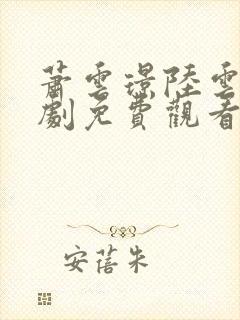 蕭雲璟陸雲
劇免費觀看
安蓓朱